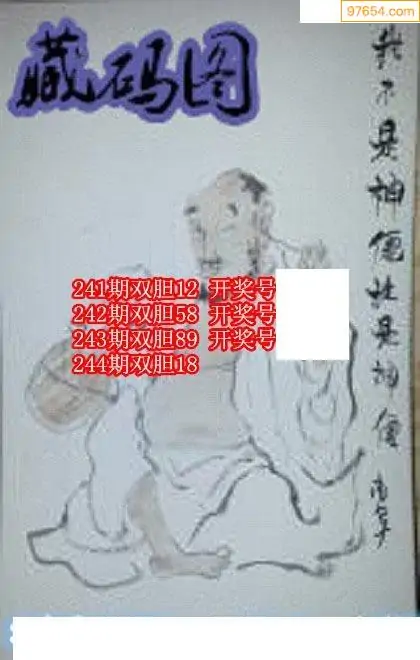 97654.com
藏码图
我不是神但就是神僊
241期双胆12 开奖号
242期双胆58 开奖号
243期双胆89 开奖号
244期双胆18